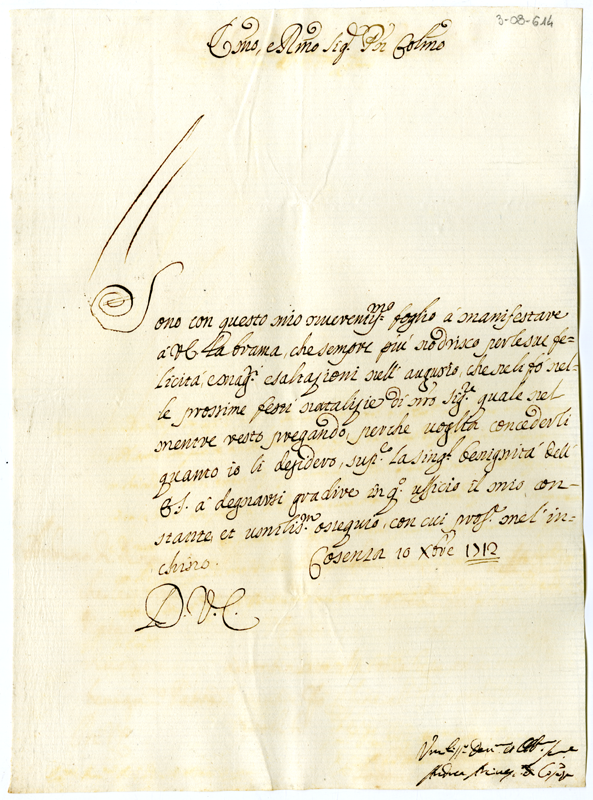 3-08-614
Emo, e Rmo Sigr Pn Colmo
Sono con questo mio riverentismo foglio à manifestare
à V.E. la brama, che sempre più nodrisco per le sue fe=
licità, e magri esaltazioni nell' augurio, che neli fò nel=
le prossime ferie natalizie di nro Sigre quale nel
mentre resto pregando, perche voglia concederli
quanto io li desidero, supco la singr benignità dell'
E.S. à degnarsi gradire in qo ufficio il mio con=
stante, et umilismo ossequio, con cui profte me l' in=
chino. Cosenza 10 Xbre 1712
D. V. E.
Andrea